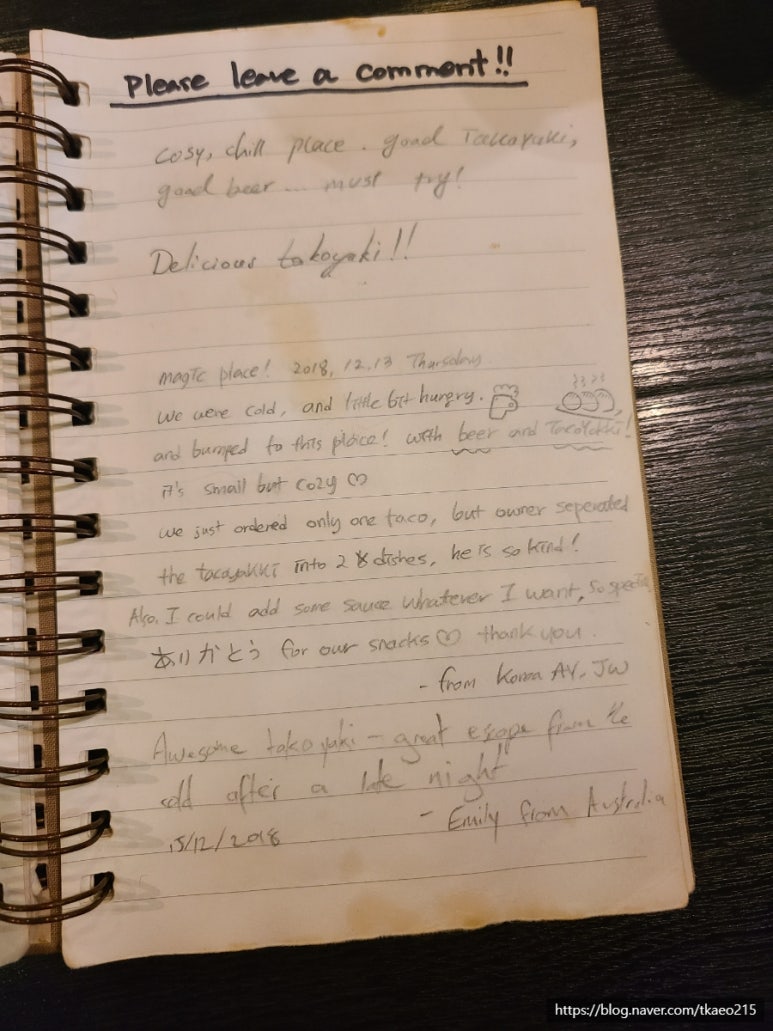 Please leave a comment!!
Cosy, chill place. good Takoyaki,
good beer... must try!
Delicious takoyaki!!
magic place! 2018, 12.13 Thursday
we were cold, and little bit hungry.
and bumped to this place! with beer and Tacoyakki!
it's small but cozy ♡
we just ordered only one taco, but owner seperated
the tacoyakki into 2 dishes, he is so kind!
Also, I could add some sauce whatever I want, so special
ありがとう for our snacks ♡ thank you.
- from Korea AY, JW
Awesome takoyaki - great escape from the
cold after a late night
- Emily from Australia
15/12/2018
https://blog.naver.com/tkaeo215